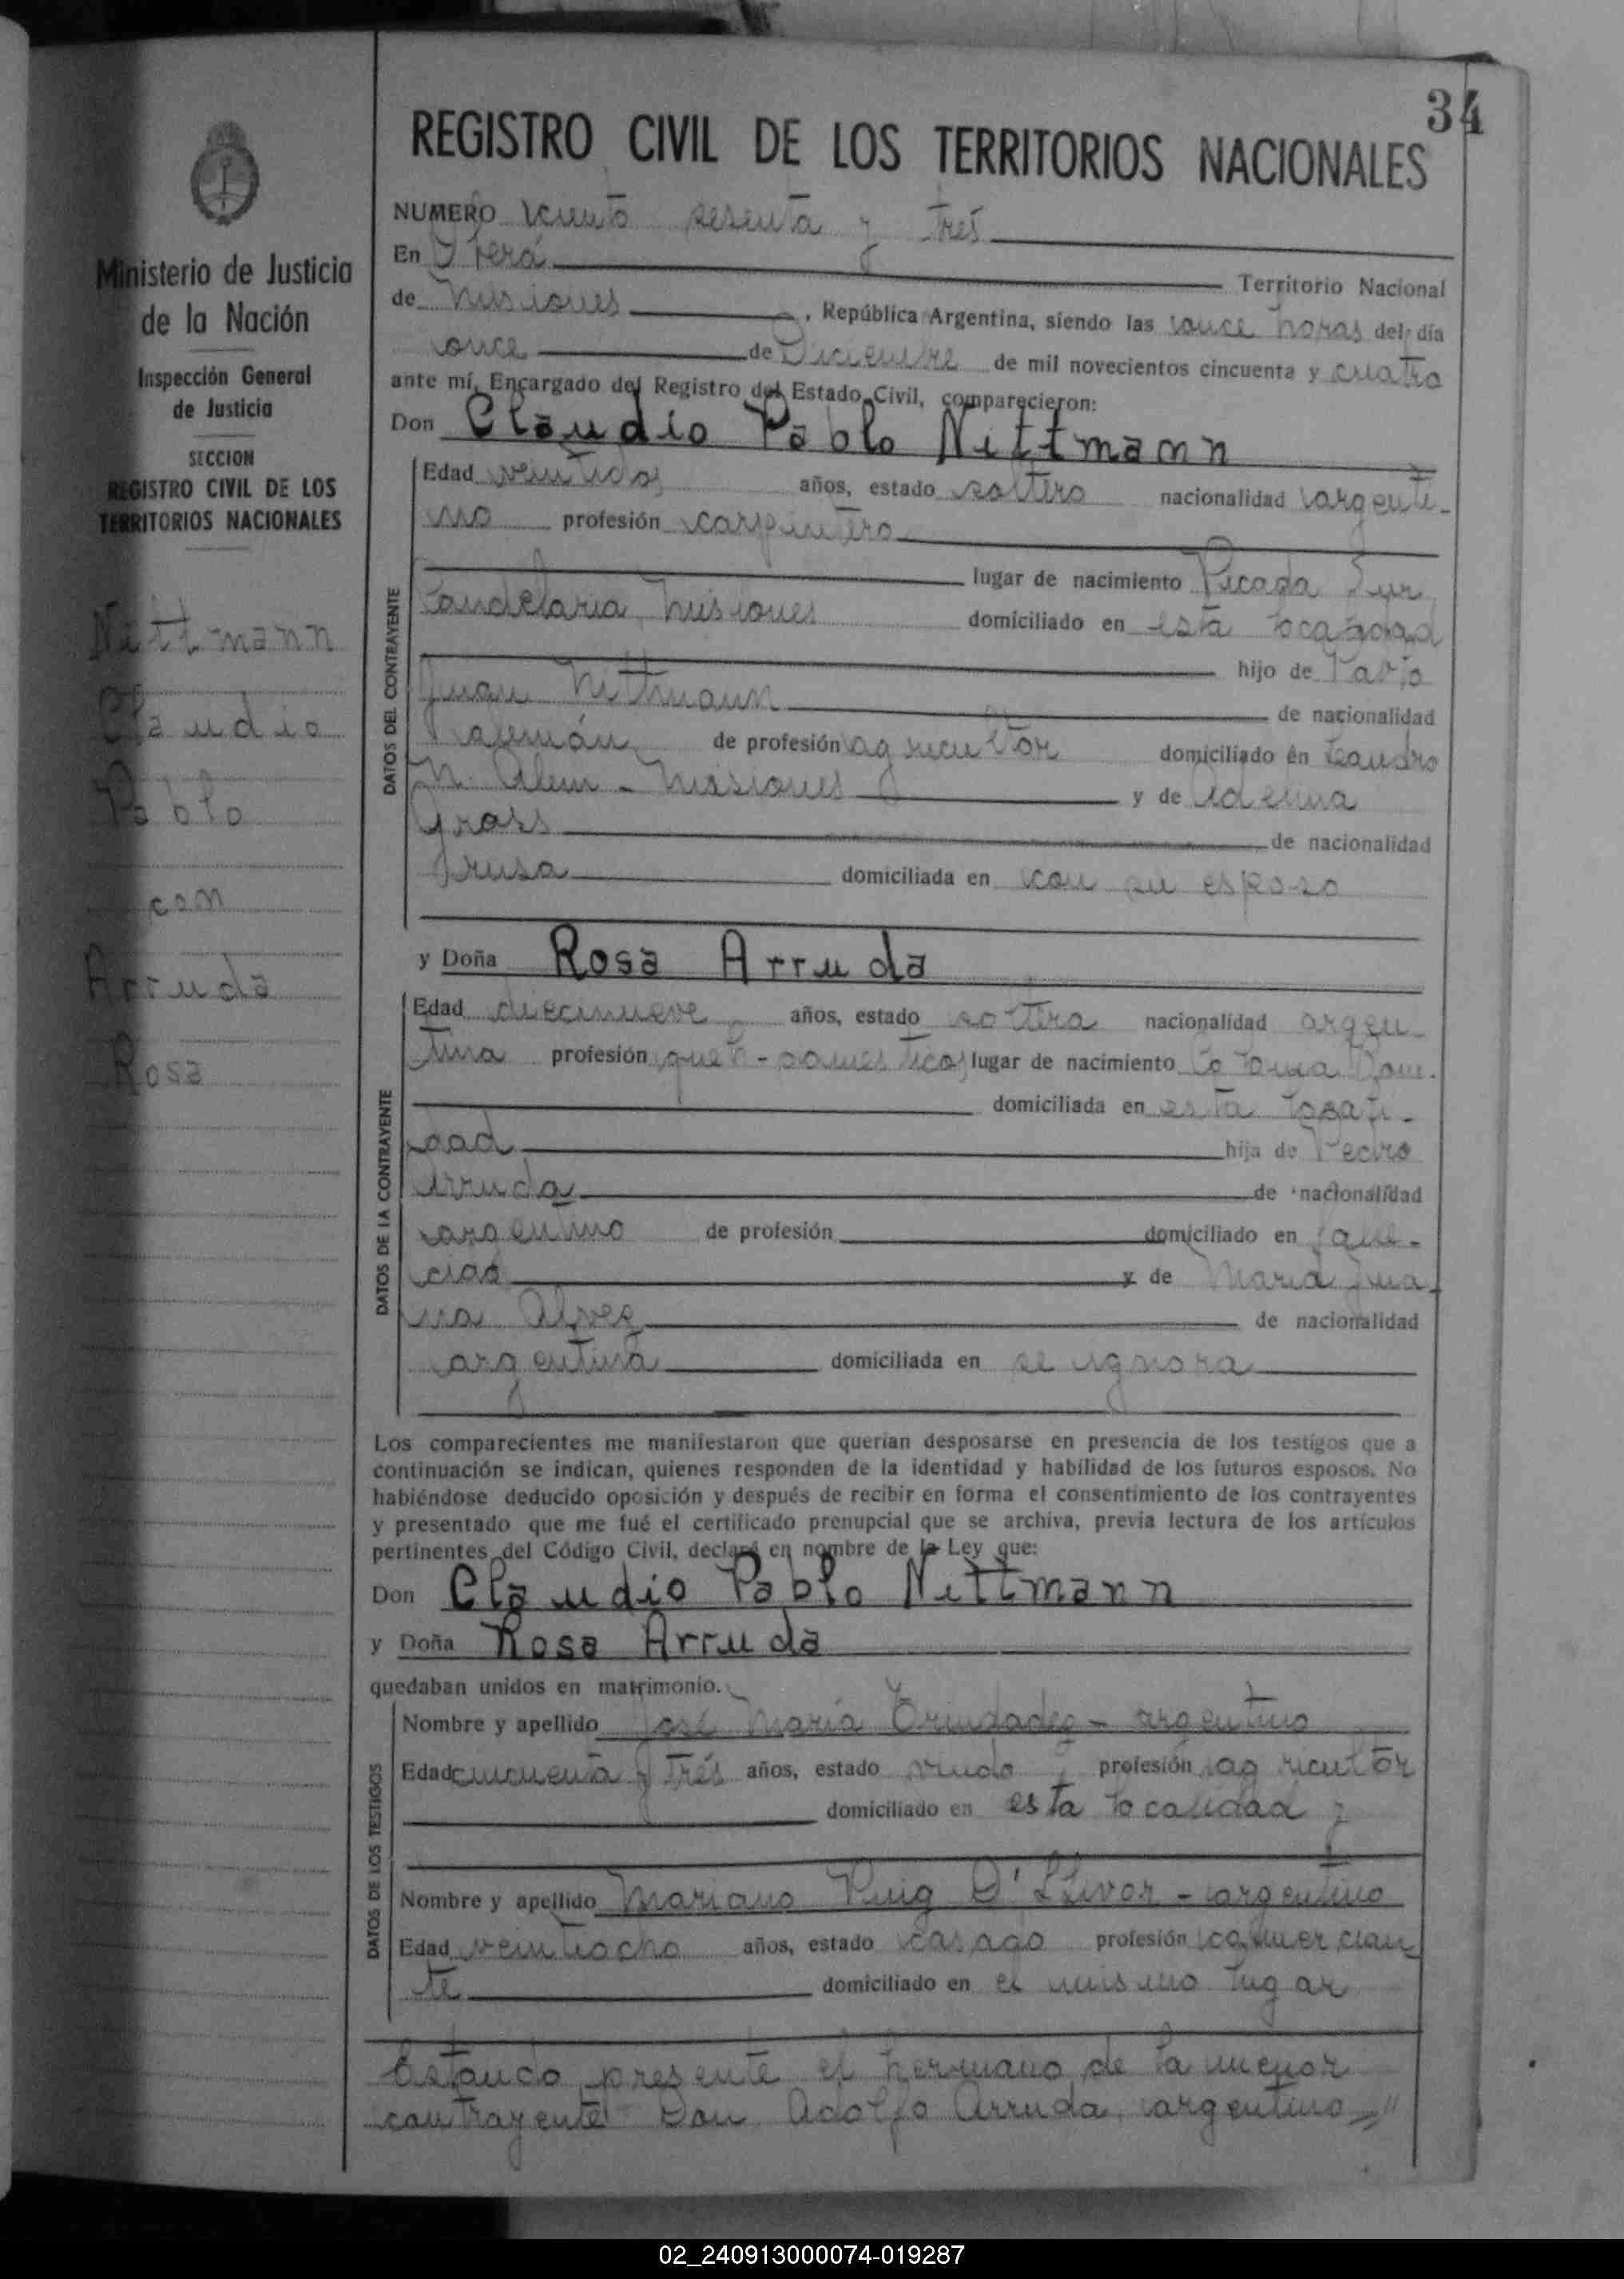 34
REGISTRO CIVIL DE LOS TERRITORIOS NACIONALES
Ministerio de Justicia
de la Nación
Inspección General
de Justicia
SECCION
REGISTRO CIVIL DE LOS
TERRITORIOS NACIONALES
Nittmann
Claudio
Pablo
con
Arruda
Rosa
NUMERO ciento sesenta y tres
En Oberá Territorio Nacional
de Misiones, República Argentina, siendo las once horas del día
once de Diciembre de mil novecientos cincuenta y cuatro
ante mí, Encargado del Registro del Estado Civil, comparecieron:
Don Claudio Pablo Nittmann
DATOS DEL CONTRAYENTE
Edad veintidos años, estado soltero nacionalidad argenti-
no profesión carpintero
lugar de nacimiento Picada Sur
Candelaria Misiones domiciliado en esta localidad
hijo de Pablo
Juan Nittmann de nacionalidad
alemán de profesión agricultor domiciliado en Leandro
N. Alem - Misiones y de Adelina
Grass de nacionalidad
rusa domiciliada en con su esposo
y Doña Rosa Arruda
DATOS DE LA CONTRAYENTE
Edad diecinueve años, estado soltera nacionalidad argen-
tina profesión queh-domesticos lugar de nacimiento
domiciliada en esta locali-
dad hija de Pedro
Arruda de nacionalidad
argentino de profesión domiciliado en
y de Maria Jua-
na Alves de nacionalidad
argentina domiciliada en se ignora
Los comparecientes me manifestaron que querían desposarse en presencia de los testigos que a
continuación se indican, quienes responden de la identidad y habilidad de los futuros esposos. No
habiéndose deducido oposición y después de recibir en forma el consentimiento de los contrayentes
y presentado que me fué el certificado prenupcial que se archiva, previa lectura de los artículos
pertinentes del Código Civil, declaré en nombre de la Ley que:
Don Claudio Pablo Nittmann
y Doña Rosa Arruda
quedaban unidos en matrimonio.
DATOS DE LOS TESTIGOS
Nombre y apellido José María Trindades - argentino
Edad cincuenta y trés años, estado viudo profesión agricultor
domiciliado en esta localidad y
Nombre y apellido Mariano Puig D'Llivor - argentino
Edad veintiocho años, estado casado profesión comercian
te domiciliado en el mismo lugar
Estando presente el hermano de la menor
contrayente Don Adolfo Arruda, argentino
02_240913000074-019287